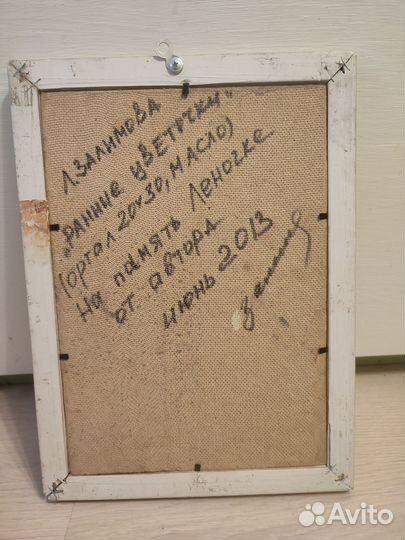 Л. ЗАЛИМОВА
„РАННИЕ ЦВЕТОЧКИ"
(оргал 20х30, МАСЛО)
НА ПАМЯТЬ Леночке
от автора
июнь 2013
Avito